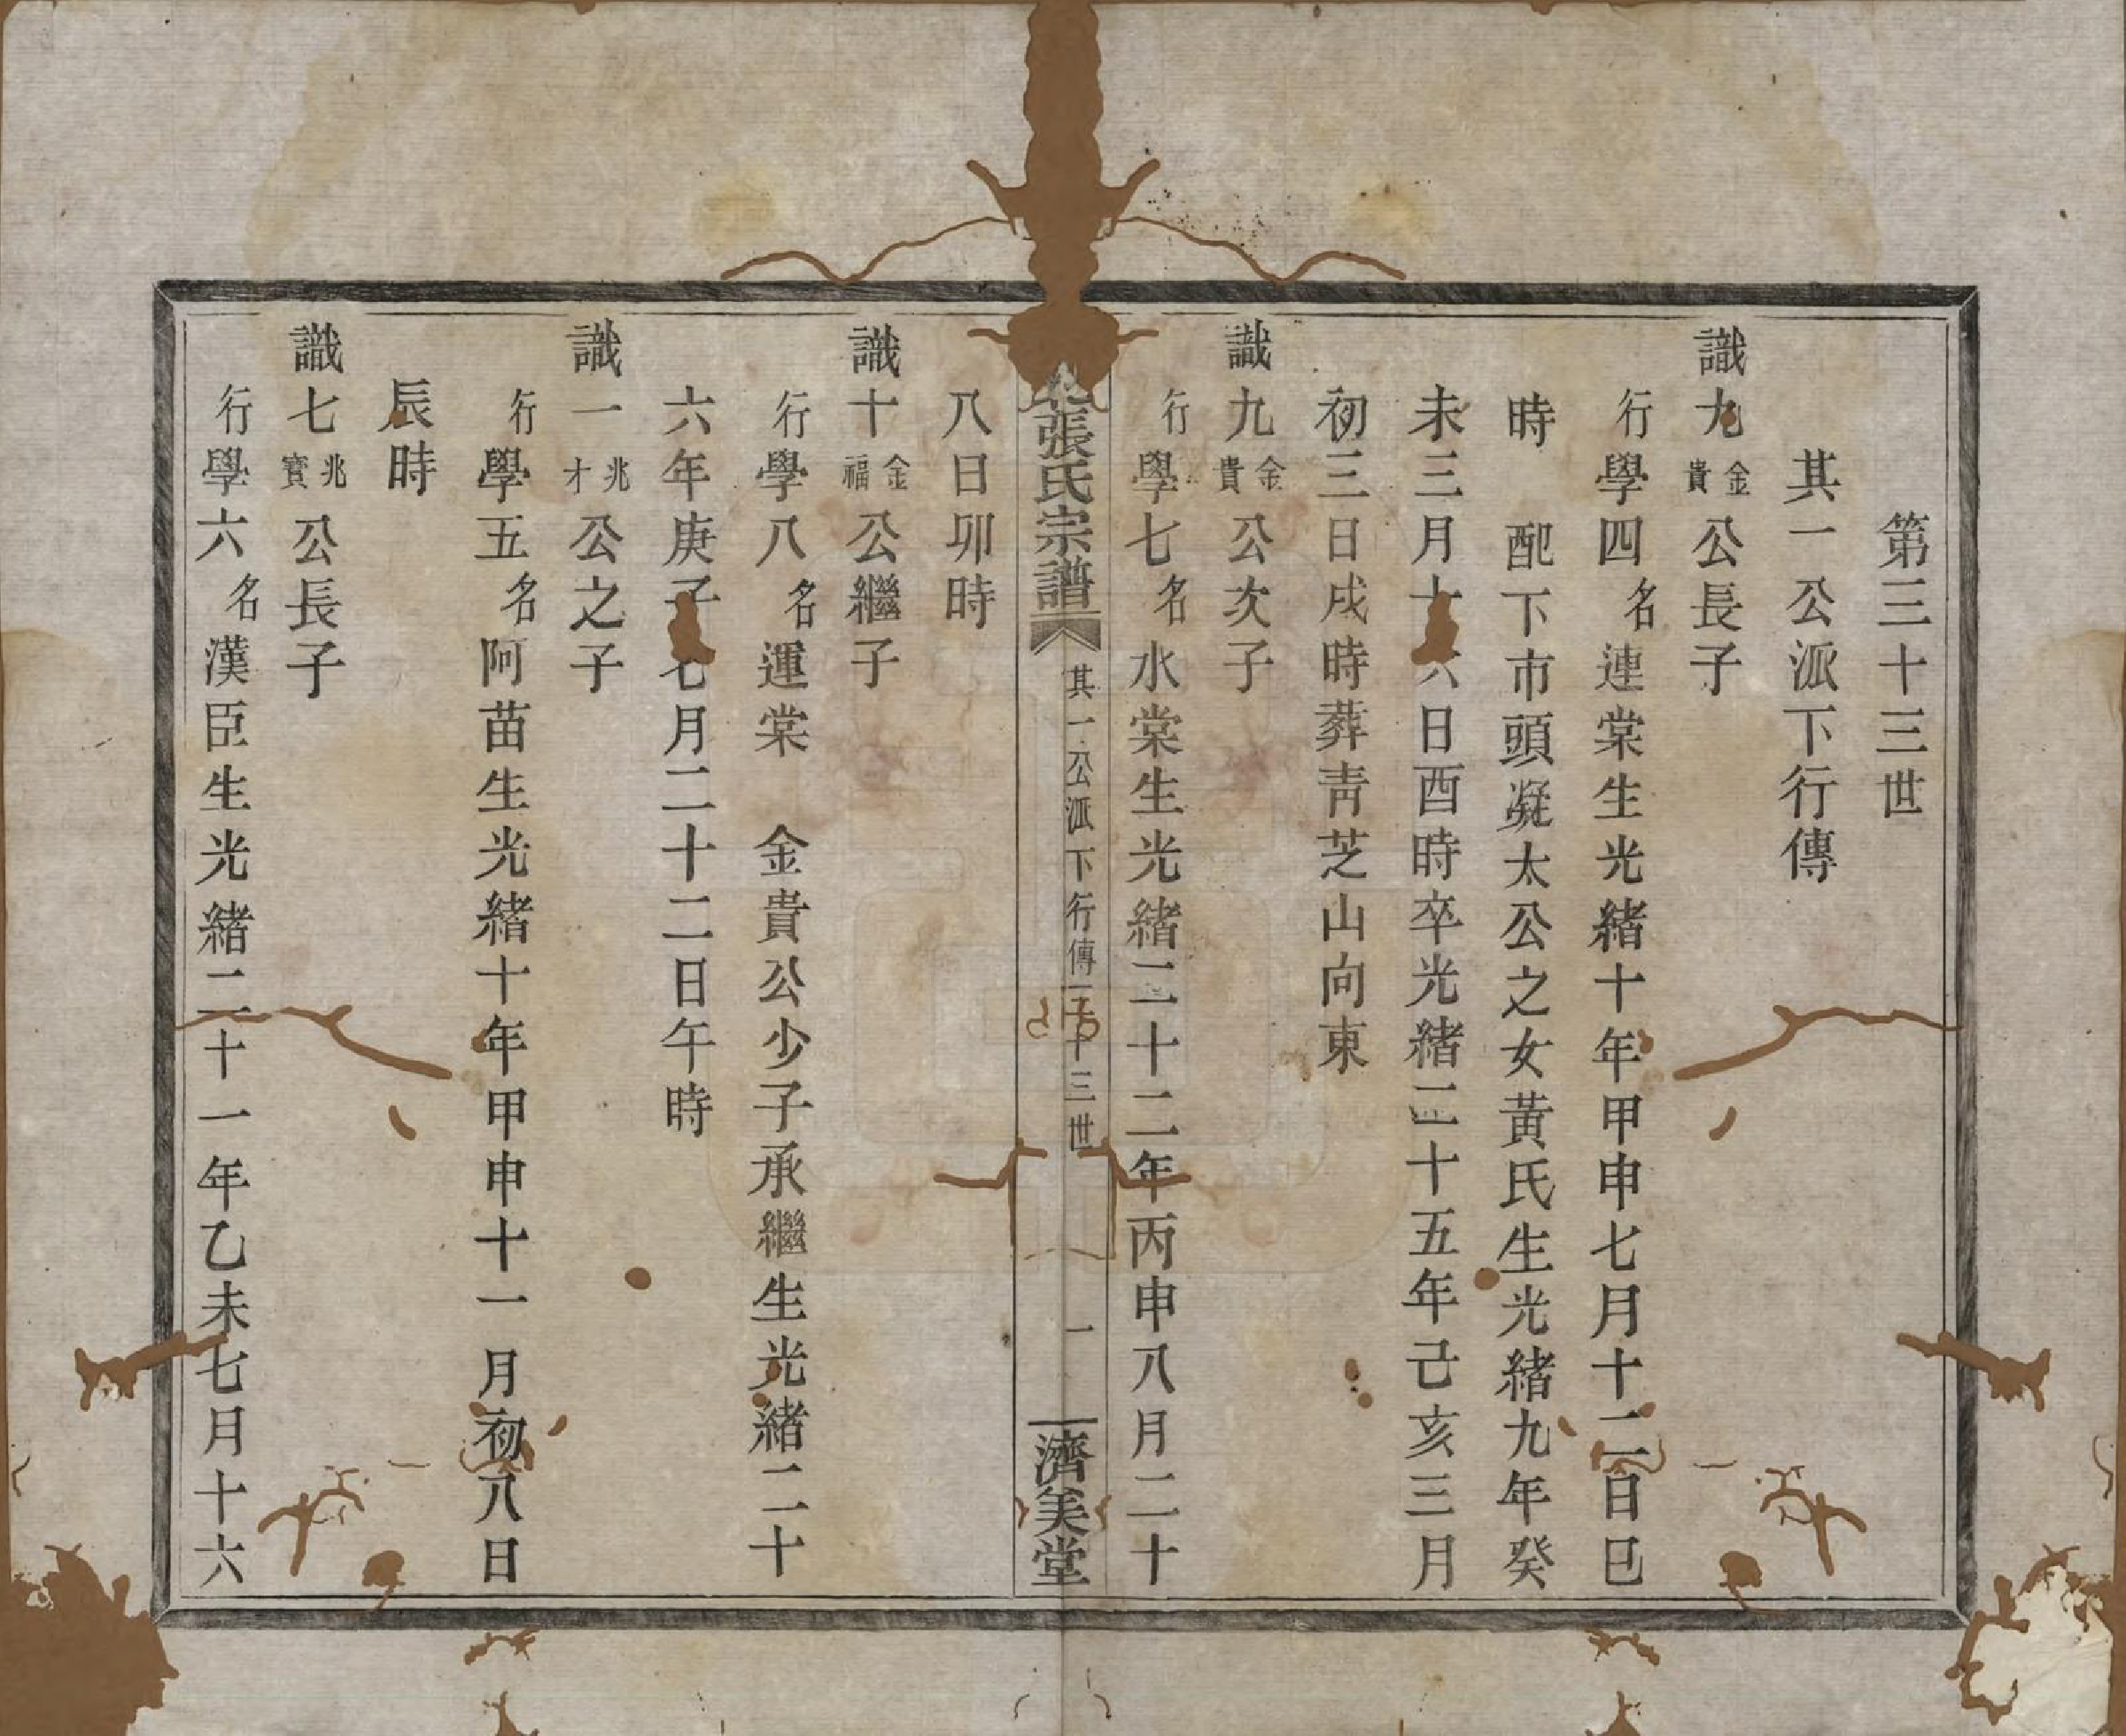 第三十三世
其一公派下行傳
識九金貴公長子
行學四名連棠生光緒十年甲申七月十二日巳
時　配下市頭凝太公之女黃氏生光緒九年癸
未三月十六日酉時卒光緒二十五年己亥三月
初三日戌時葬靑芝山向東
識九金貴公次子
行學七名水棠生光緒二十二年丙申八月二十
張氏宗譜　其一公派下行傳　三十三世　一　濟美堂
八日卯時
識十金福公繼子
行學八名運棠　金貴公少子承繼生光緒二十
六年庚子七月二十二日午時
識一兆才公之子
行學五名阿苗生光緒十年甲申十一月初八日
辰時
識七兆寶公長子
行學六名漢臣生光緒二十一年乙未七月十六